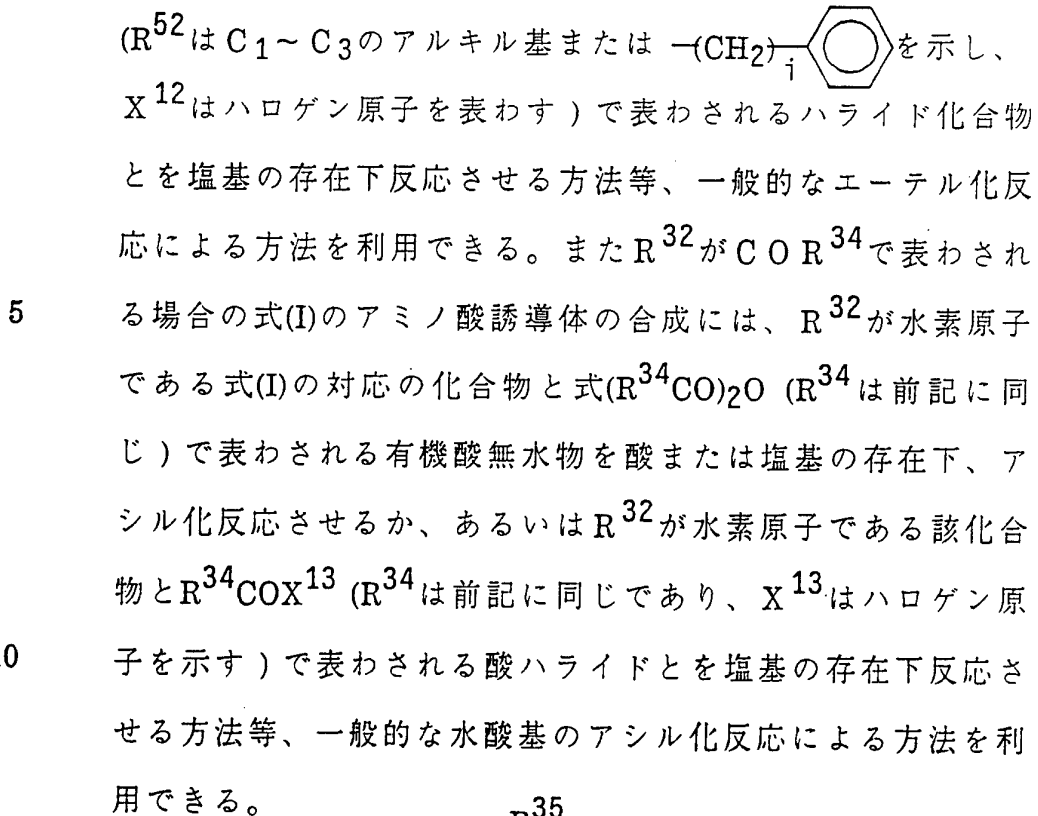 (R⁵²はC₁~C₃のアルキル基または -(CH₂)ᵢ- を示し、
X¹²はハロゲン原子を表わす)で表わされるハライド化合物
とを塩基の存在下反応させる方法等、一般的なエーテル化反
応による方法を利用できる。またR³²がCOR³⁴で表わされ
5 る場合の式(I)のアミノ酸誘導体の合成には、R³²が水素原子
である式(I)の対応の化合物と式(R³⁴CO)₂O (R³⁴は前記に同
じ)で表わされる有機酸無水物を酸または塩基の存在下、ア
シル化反応させるか、あるいはR³²が水素原子である該化合
物とR³⁴COX¹³ (R³⁴は前記に同じであり、X¹³はハロゲン原
0 子を示す)で表わされる酸ハライドとを塩基の存在下反応さ
せる方法等、一般的な水酸基のアシル化反応による方法を利
用できる。
R³⁵